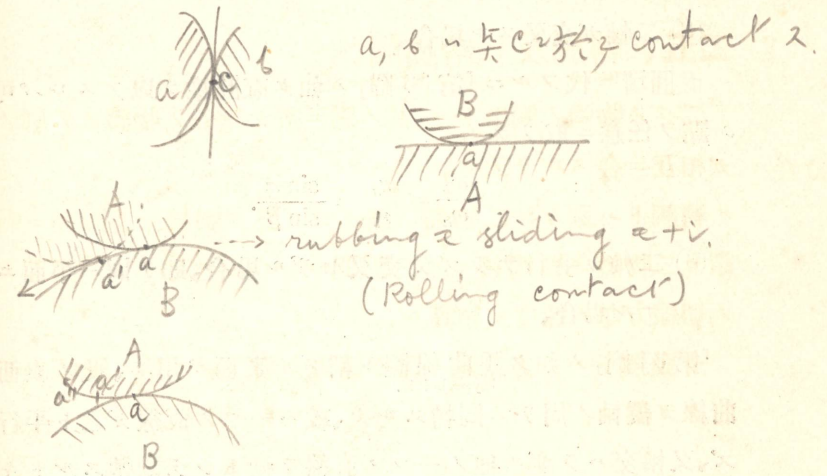 a b c
a, b ハ 点Cニ於テ contact ス.
B
a
A
A
a' a
B
rubbing モ sliding モ ナイ.
(Rolling contact)
A
a'' a' a
B